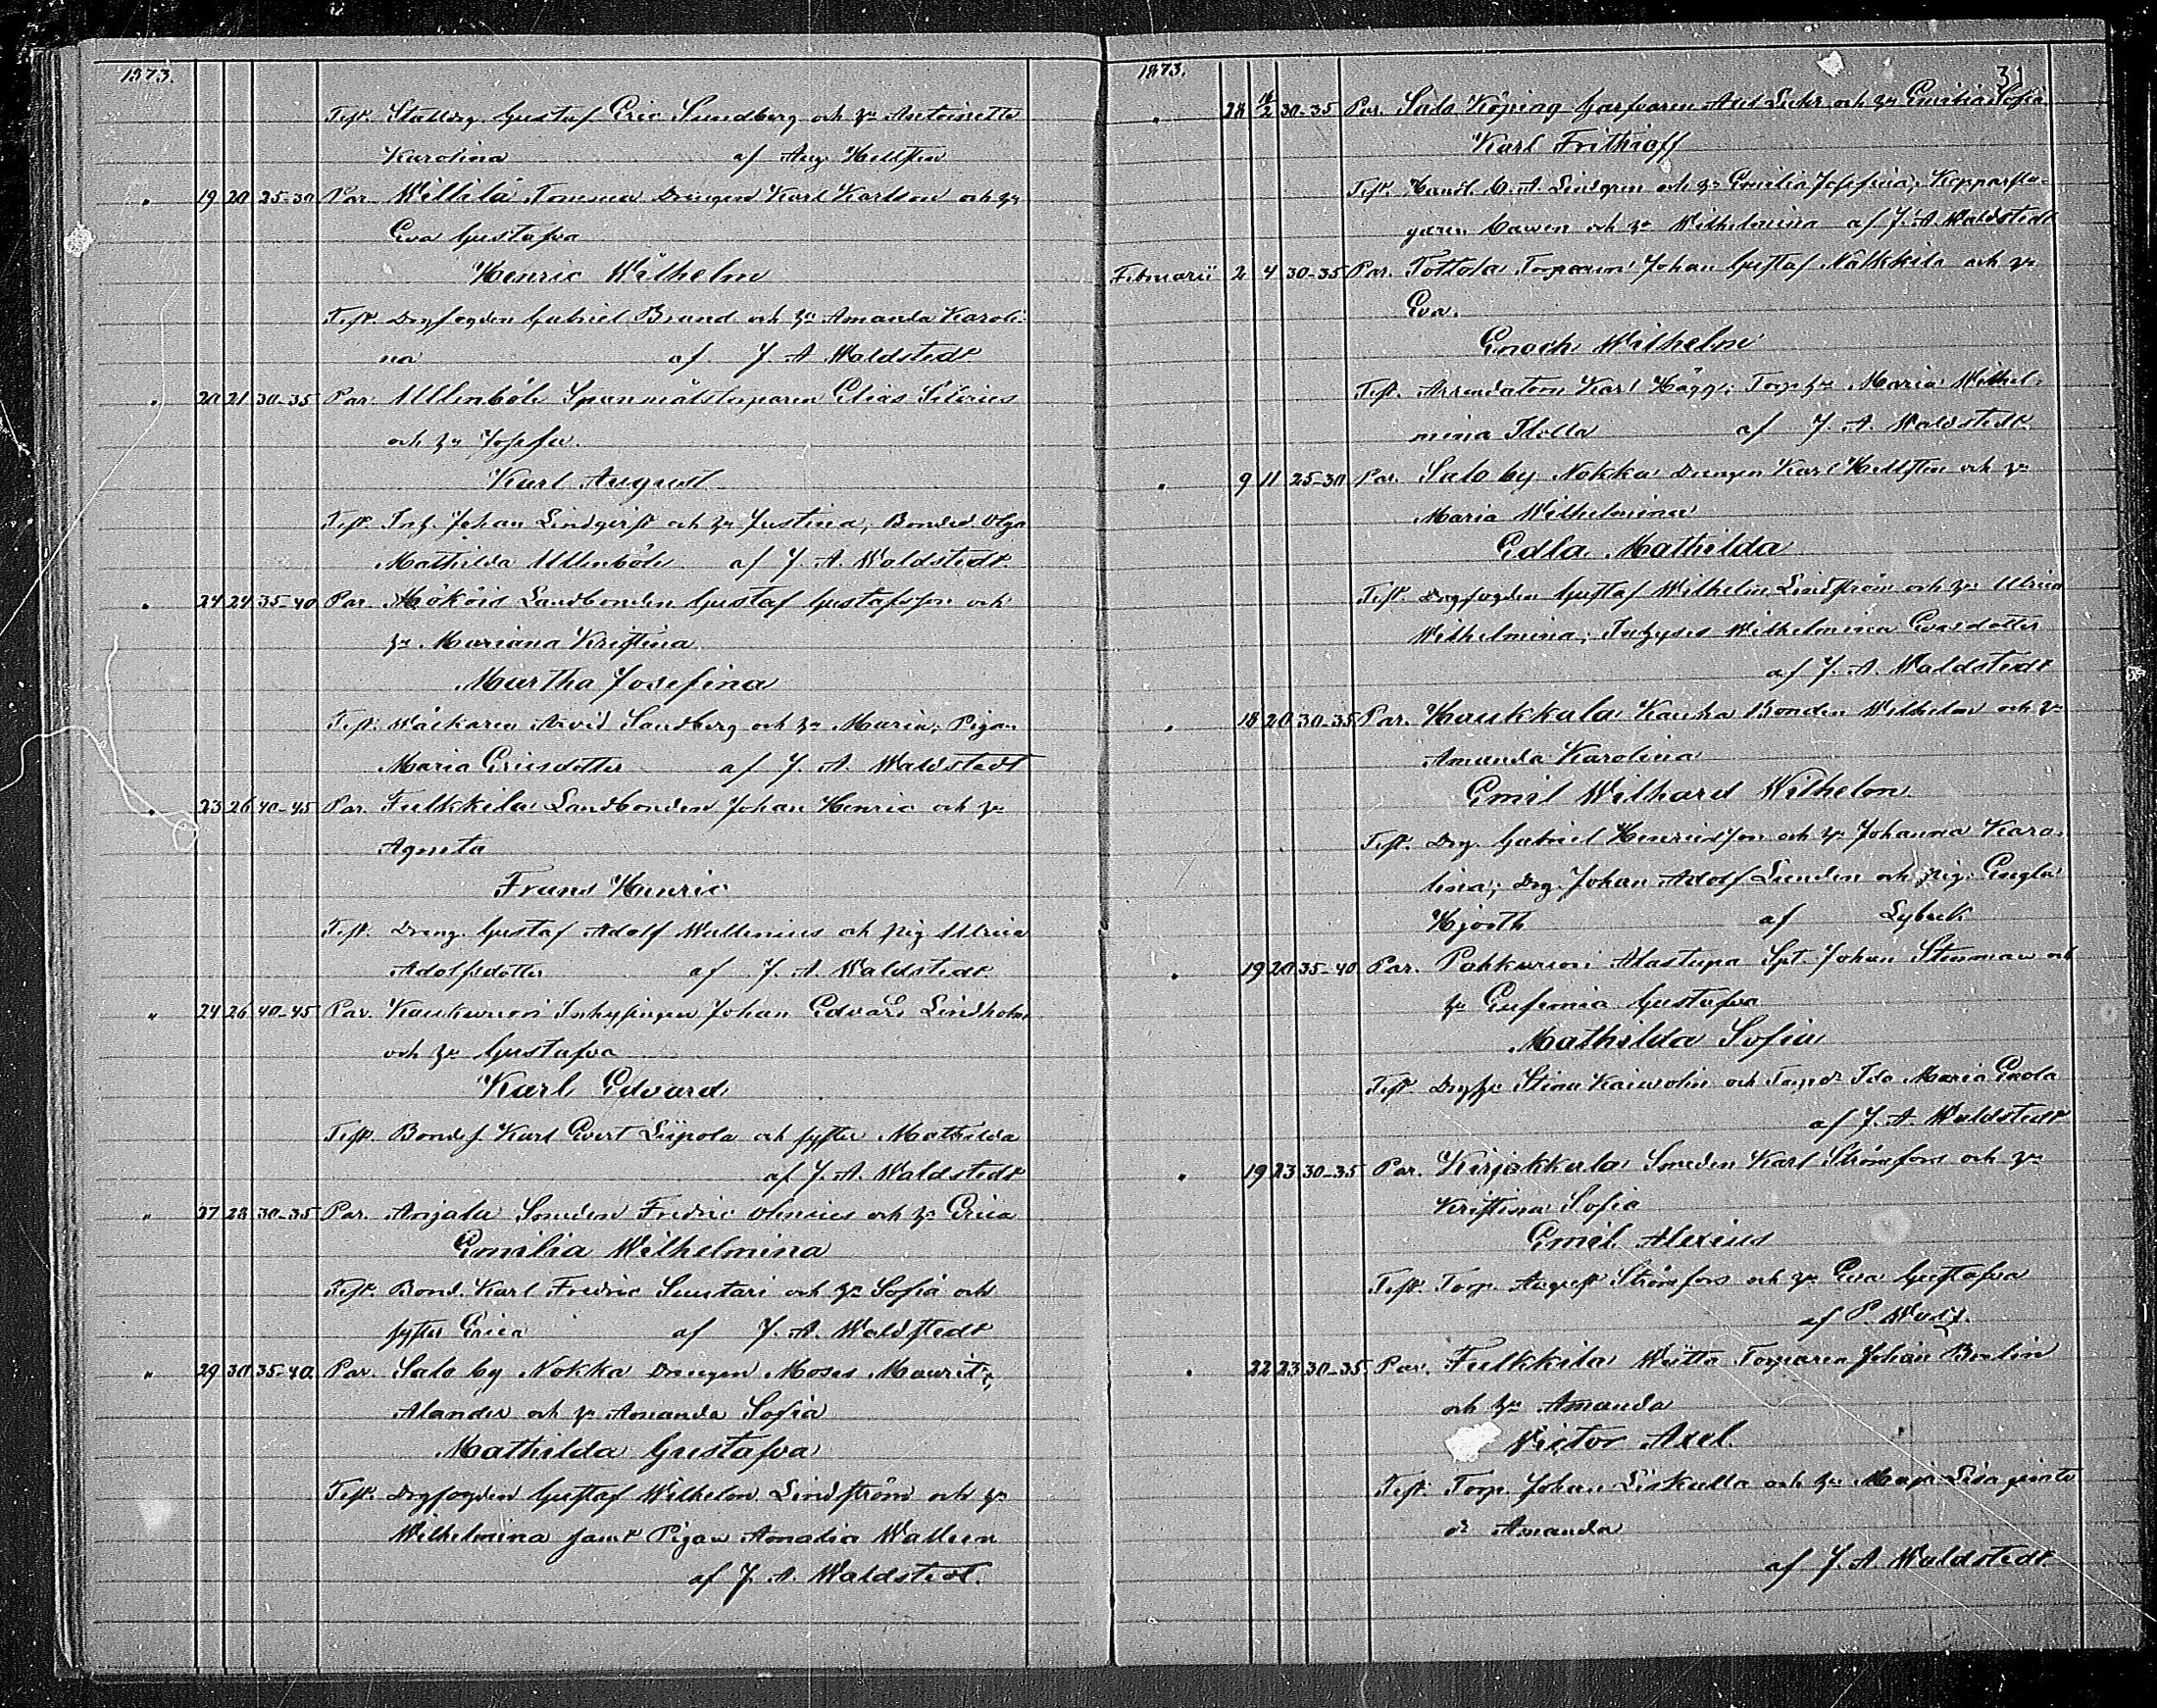 1873.
Test. Stalldrg. Gustaf Eric Sundberg och h. Antoinette
Karolina af Aug. Hellsten
" 19 20 25-30 Par. Willilä Tomma Drengen Karl Karlson och h.
Eva Gustafva
Henric Wilhelm
Test. Drgfogden Gabriel Brand och h. Amanda Karoli-
na af J. A. Waldstedt
" 20 21 30-35 Par. Ullenböle Spanmålstorparen Elias Silvius
och h. Josefa.
Karl August
Test. Inh. Johan Lindqvist och h. Justina, Bonded Olga
Mathilda Ullenböle af J. A. Waldstedt.
" 24 24 35-40 Par. Landbonden Gustaf Gustafsson och
h. Mariana Kristina
Martha Josefina
Test. Arvid Sandberg och h. Maria, Pigan
Maria Ericsdotter af J. A. Waldstedt
" 23 26 40-45 Par. Fulkkila Landbonden Johan Henric och h.
Agneta
Frans Henric
Test. Dreng. Gustaf Adolf Wallenius och pig. Ulrica
Adolfsdotter af J. A. Waldstedt.
" 24 26 40-45 Par. Kaukurion Inhysingen Johan Edvard Lindholm
och h. Gustafva
Karl Edvard
Test. Bondes. Karl Evert Liipola och syster Mathilda
af J. A. Waldstedt
" 27 28 30-35 Par. Anjala Smeden Fredric Olenius och h. Erica
Emilia Wilhelmina
Test. Bond. Karl Fredric Suutari och h. Sofia och
syster Erica af J. A. Waldstedt
" 29 30 35-40 Par. Salo by Nokka Drengen Moses Maurits
Alander och h. Amanda Sofia
Mathilda Gustafva
Test. Drgfogden Gustaf Wilhelm Lindström och h.
Wilhelmina samt Pigan Amalia Wallen
af J. A. Waldstedt.
1873. 31
" 28 16/2 30-35 Par. Salo Köping Garfvaren Axel Suhr och h. Emilia Sofia
Karl Frithioff
Test. Handl. C. A. Lindgren och h. Emilia Josefina, Kopparsla-
garen Cawen och h. Wilhelmina af J. A. Waldstedt
Februarii 2 4 30-35 Par. Tottola Torparen Johan Gustaf Nälkkilä och h.
Eva.
Enoch Wilhelm
Test. Arrendatorn Karl Hägg, Torp.h. Maria Wilhel-
mina Tlolla af J. A. Waldstedt
" 9 11 25-30 Par. Salo by Nokka Drengen Karl Hellsten och h.
Maria Wilhelmina
Edla Mathilda
Test. Drgfogden Gustaf Wilhelm Lindström och h. Ulrica
Wilhelmina, Inhyses Wilhelmina Evasdotter
af J. A. Waldstedt
" 18 20 30-35 Par. Haukkala Kauha Bonden Wilhelm och h.
Amanda Karolina
Emil Wilhard Wilhelm
Test. Drg. Gabriel Henricsson och h. Johanna Karo-
lina; Drg. Johan Adolf Lunden och pig. Engla
Hjorth af Lybeck
" 19 20 35-40 Par. Pahkurioni Alastupa Spt. Johan Stenman och
h. Eufemia Gustafva
Mathilda Sofia
Test. Drgh. Stina Kaiwolin och Torpd. Ida Maria Enola
af J. A. Waldstedt
" 19 23 30-35 Par. Kirjakkala Smeden Karl Strömfors och h.
Kristina Sofia
Emil Alexius
Test. Torp. August Strömfors och h. Eva Gustafva
af P.
" 22 23 30-35 Par. Fulkkila Torparen Johan Boelin
och h. Amanda
Victor Axel.
Test. Torp. Johan Liskulla och h. Maja Lisa
d. Amanda
af J. A. Waldstedt